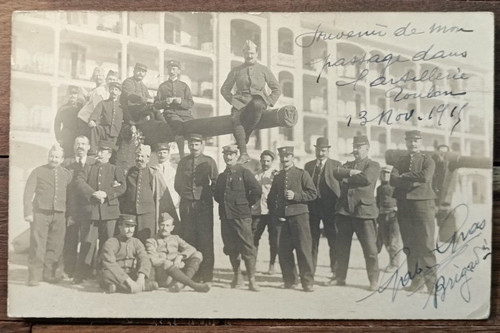 Souvenir de mon
passage dans
l'artillerie
Toulon
13 Nov. 1915
Brigadier